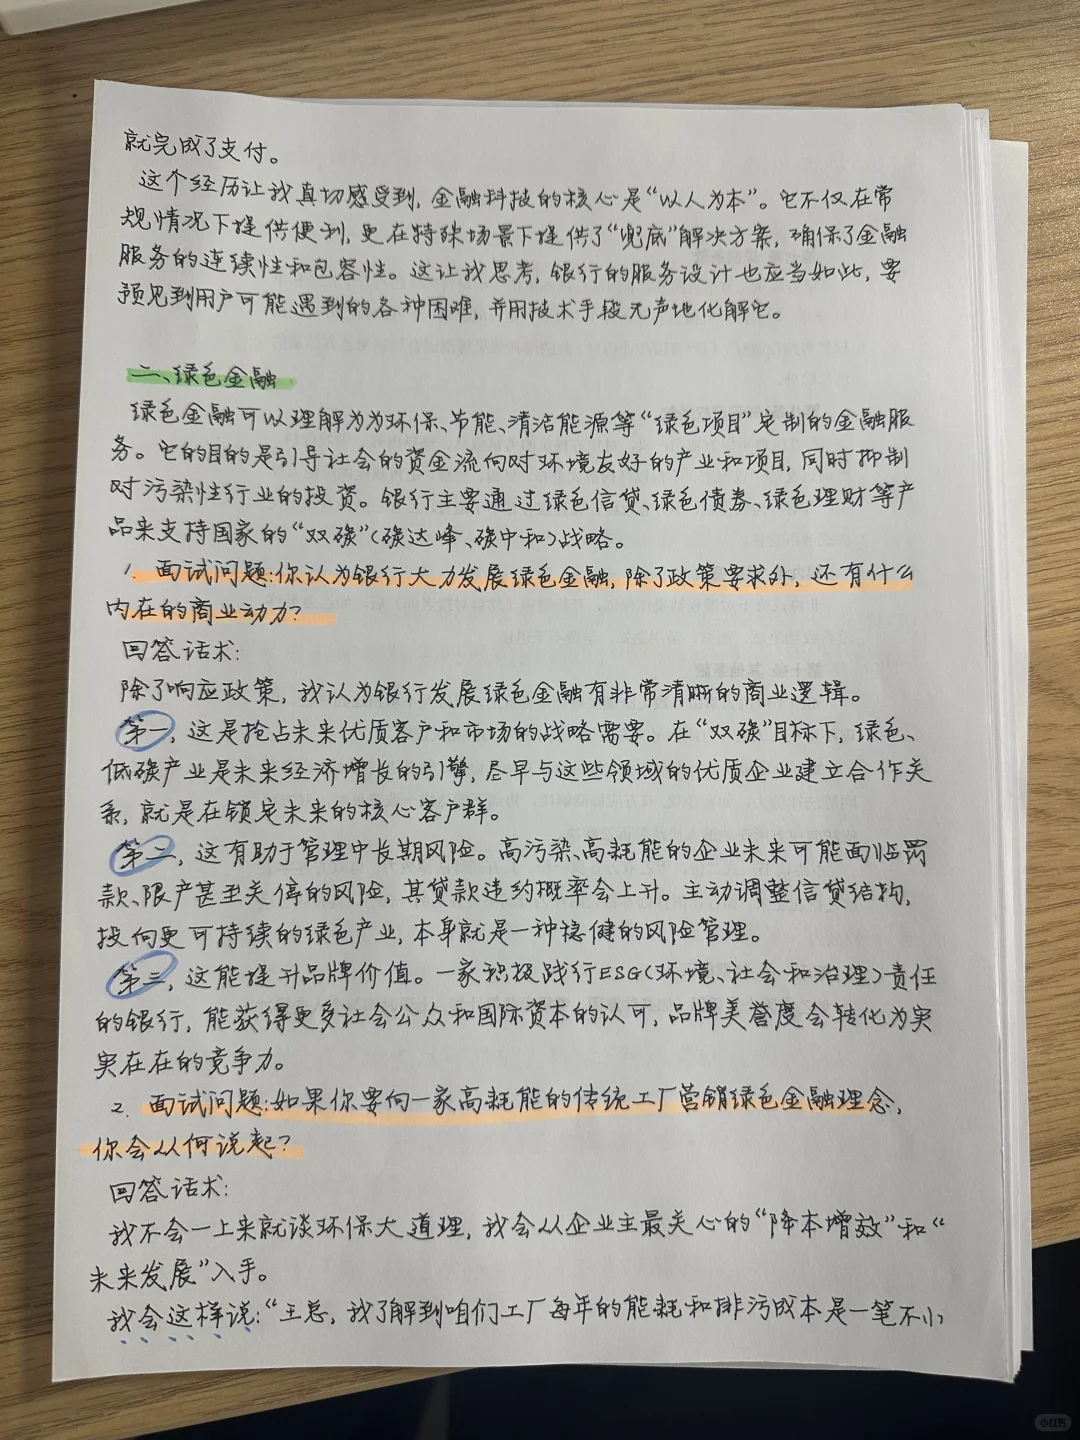 就完成了支付。
这个经历让我真切感受到,金融科技的核心是“以人为本”。它不仅在常
规情况下提供便利,更在特殊场景下提供了“兜底”解决方案,确保了金融
服务的连续性和包容性。这让我思考,银行的服务设计也应当如此,要
预见到用户可能遇到的各种困难,并用技术手段无声地化解它。
二、绿色金融
绿色金融可以理解为为环保、节能、清洁能源等“绿色项目”定制的金融服
务。它的目的是引导社会的资金流向对环境友好的产业和项目,同时抑制
对污染性行业的投资。银行主要通过绿色信贷、绿色债券、绿色理财等产
品来支持国家的“双碳”(碳达峰、碳中和)战略。
1. 面试问题:你认为银行大力发展绿色金融,除了政策要求外,还有什么
内在的商业动力?
回答话术:
除了响应政策,我认为银行发展绿色金融有非常清晰的商业逻辑。
第一,这是抢占未来优质客户和市场的战略需要。在“双碳”目标下,绿色、
低碳产业是未来经济增长的引擎,尽早与这些领域的优质企业建立合作关
系,就是在锁定未来的核心客户群。
第二,这有助于管理中长期风险。高污染、高耗能的企业未来可能面临罚
款、限产甚至关停的风险,其贷款违约概率会上升。主动调整信贷结构,
投向更可持续的绿色产业,本身就是一种稳健的风险管理。
第三,这能提升品牌价值。一家积极践行ESG(环境、社会和治理)责任
的银行,能获得更多社会公众和国际资本的认可,品牌美誉度会转化为实
实在在的竞争力。
2. 面试问题:如果你要向一家高耗能的传统工厂营销绿色金融理念,
你会从何说起?
回答话术:
我不会一上来就谈环保大道理,我会从企业主最关心的“降本增效”和“
未来发展”入手。
我会这样说:“王总,我了解到咱们工厂每年的能耗和排污成本是一笔不小
小红书